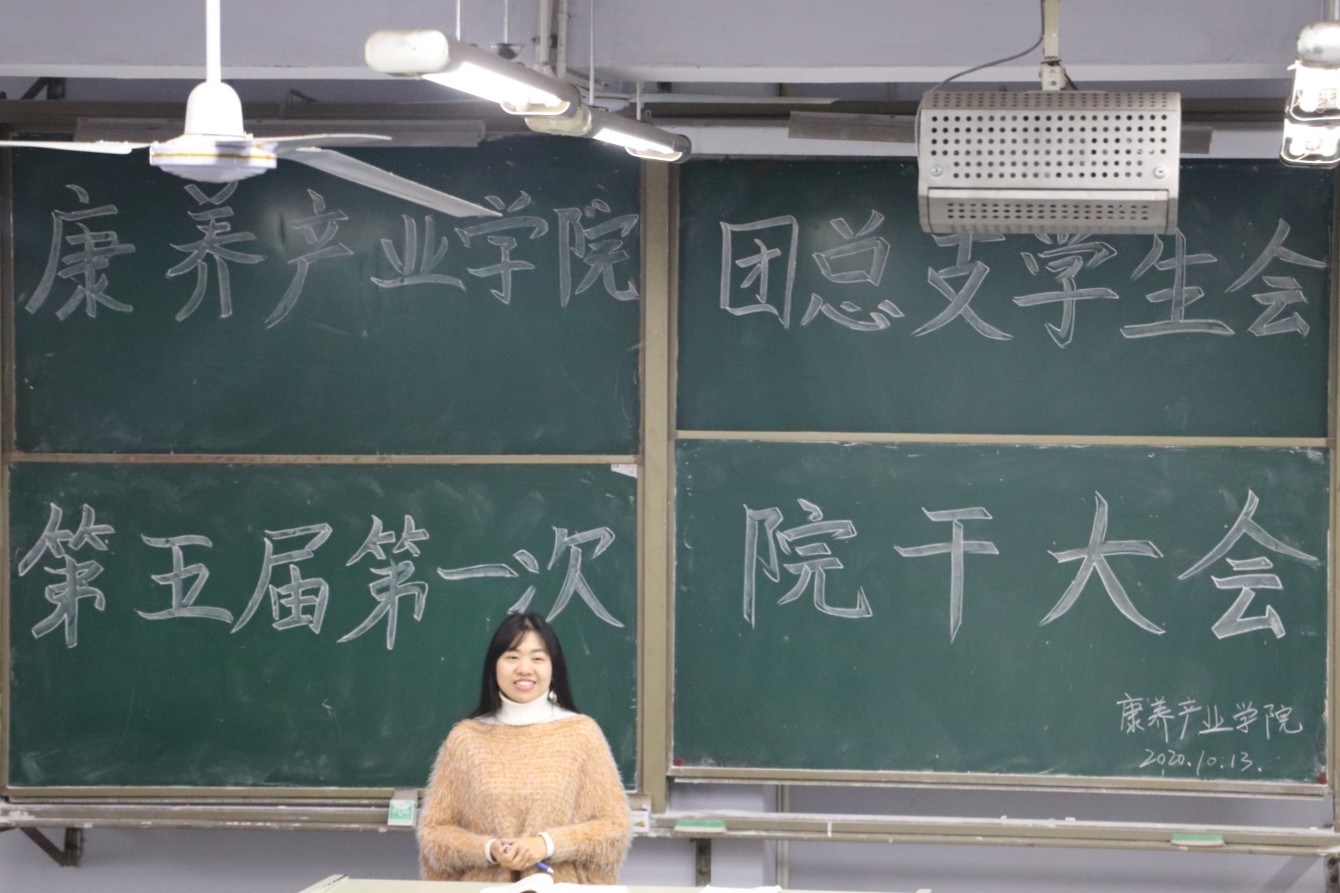 康养产业学院 团总支学生会
第五届第一次 院干大会
康养产业学院
2020.10.13.